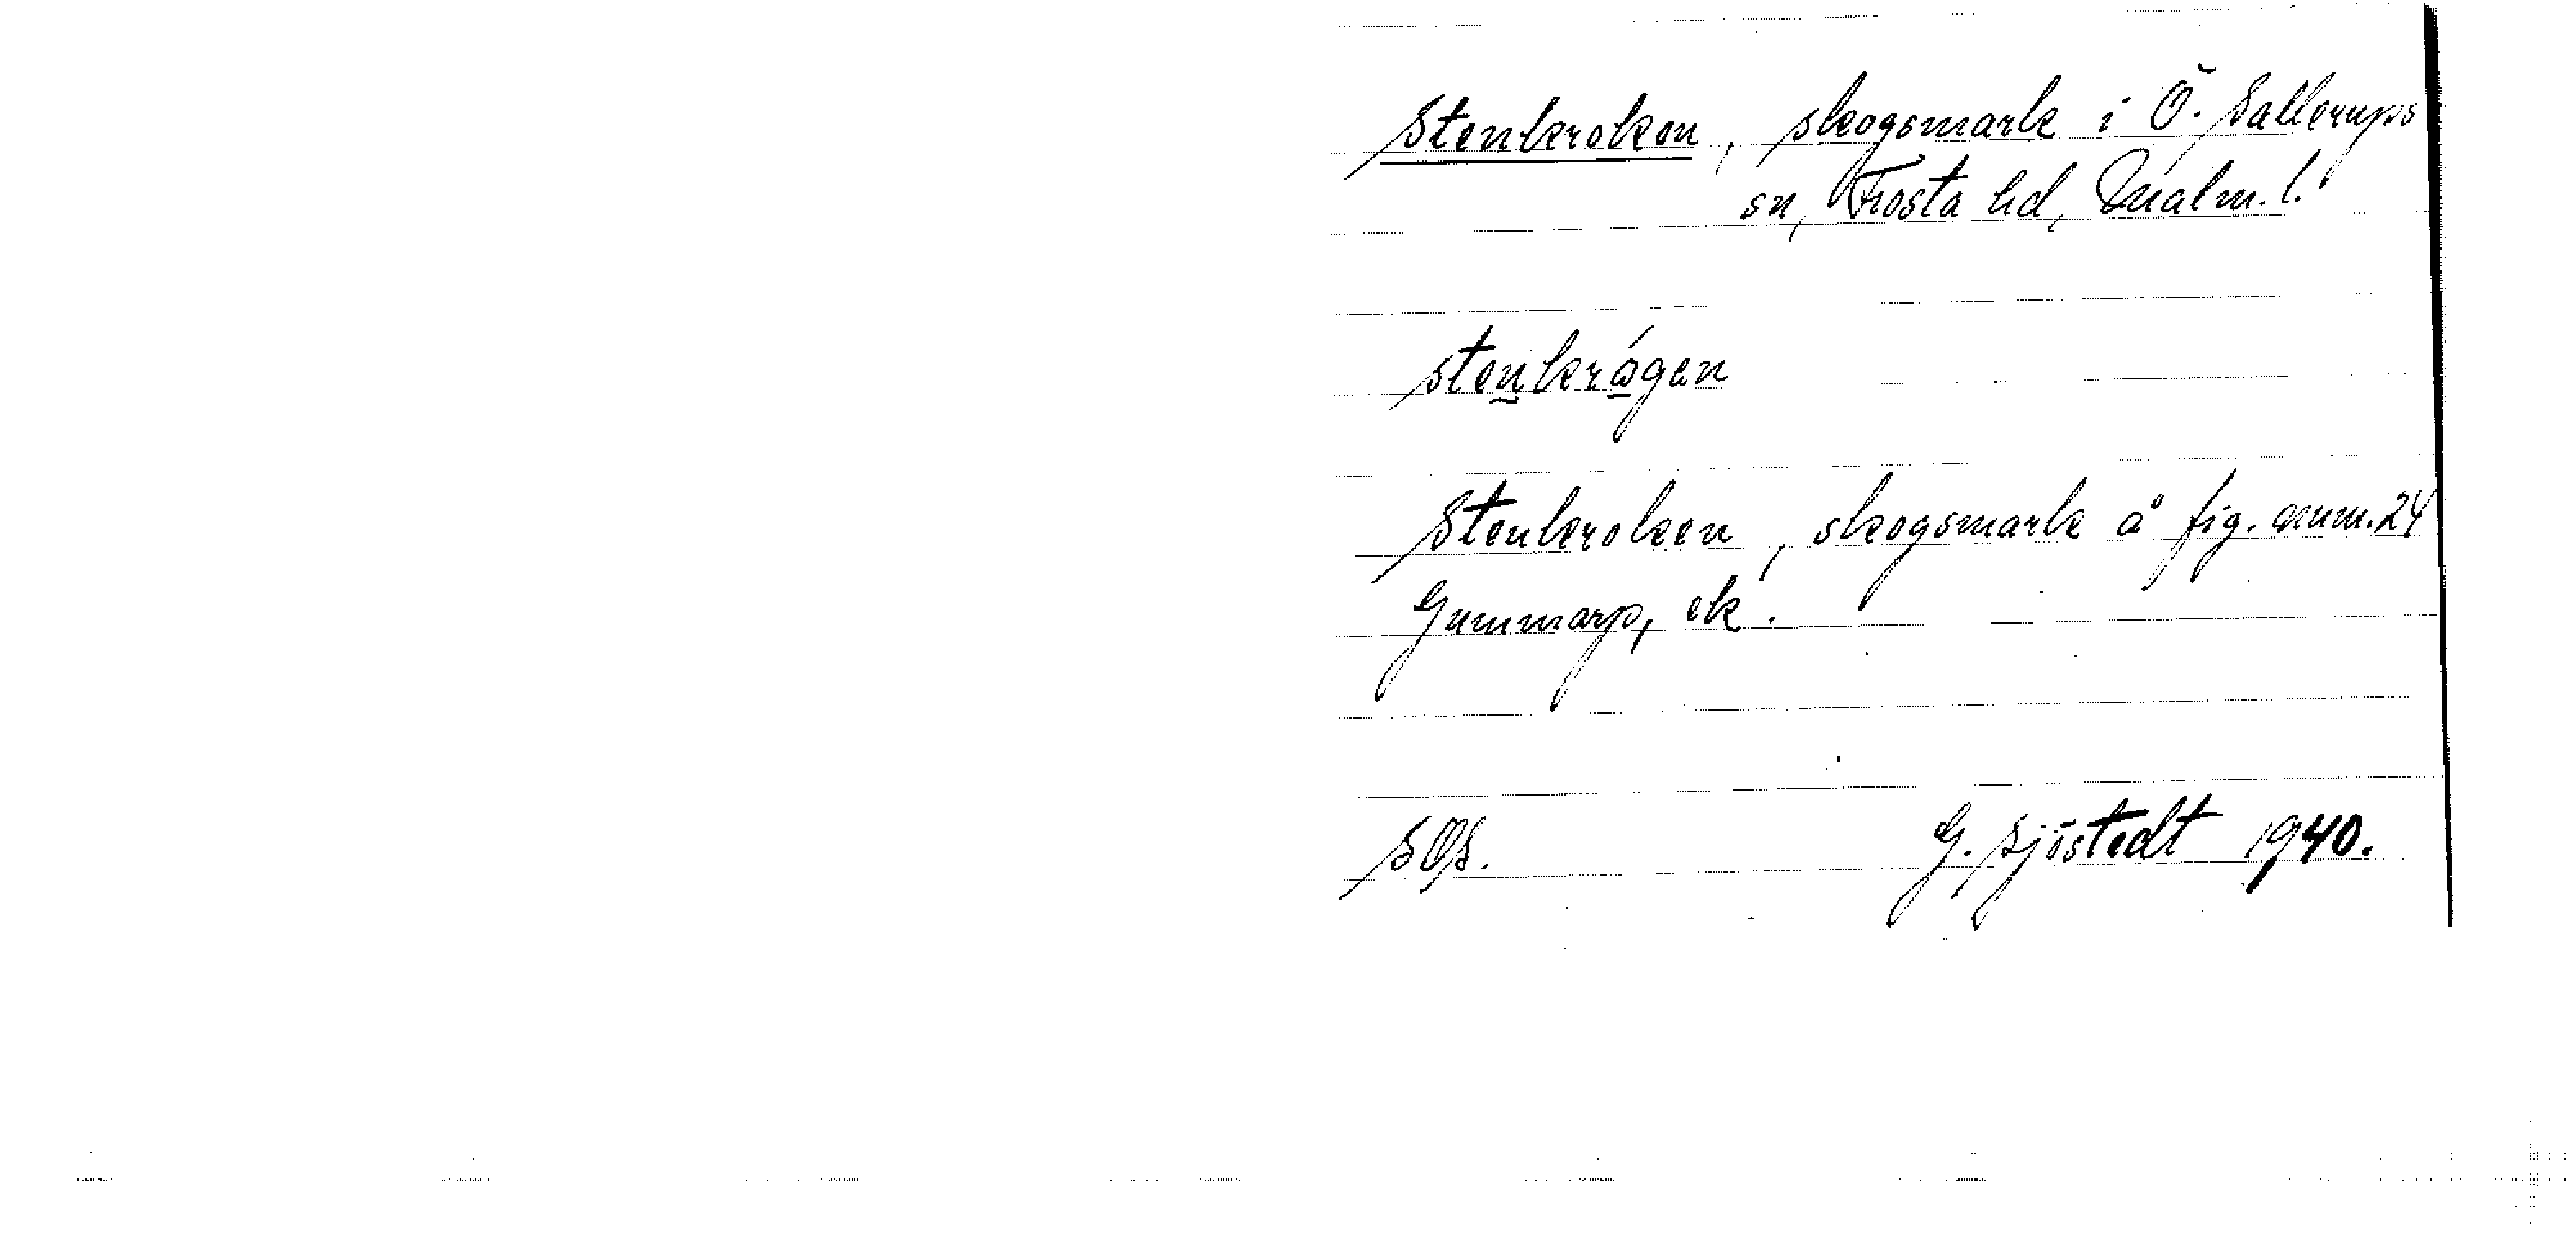 Stenkroken, skogsmark i Ö. Sallerups
sn, Frosta hd, Malm. l.
stenkrógen
Stenkroken, skogsmark å fig. anm. 24
Gummarp, ek.
SOS. G. Sjöstedt 1940.